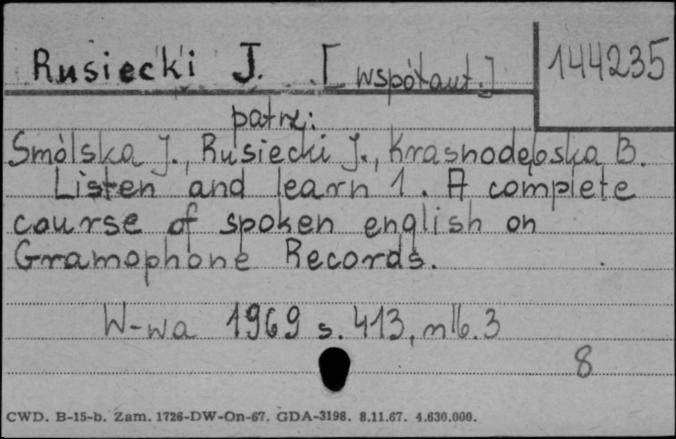 Rusiecki J. [współaut.] 144235
patrz:
Smólska J., Rusiecki J., Krasnodębska B.
Listen and learn 1. A complete
course of spoken english on
Gramophone Records.
W-wa 1969 s. 413, nlb. 3
8
CWD. B-15-b. Zam. 1726-DW-On-67. GDA-3198. 8.11.67. 4.630.000.